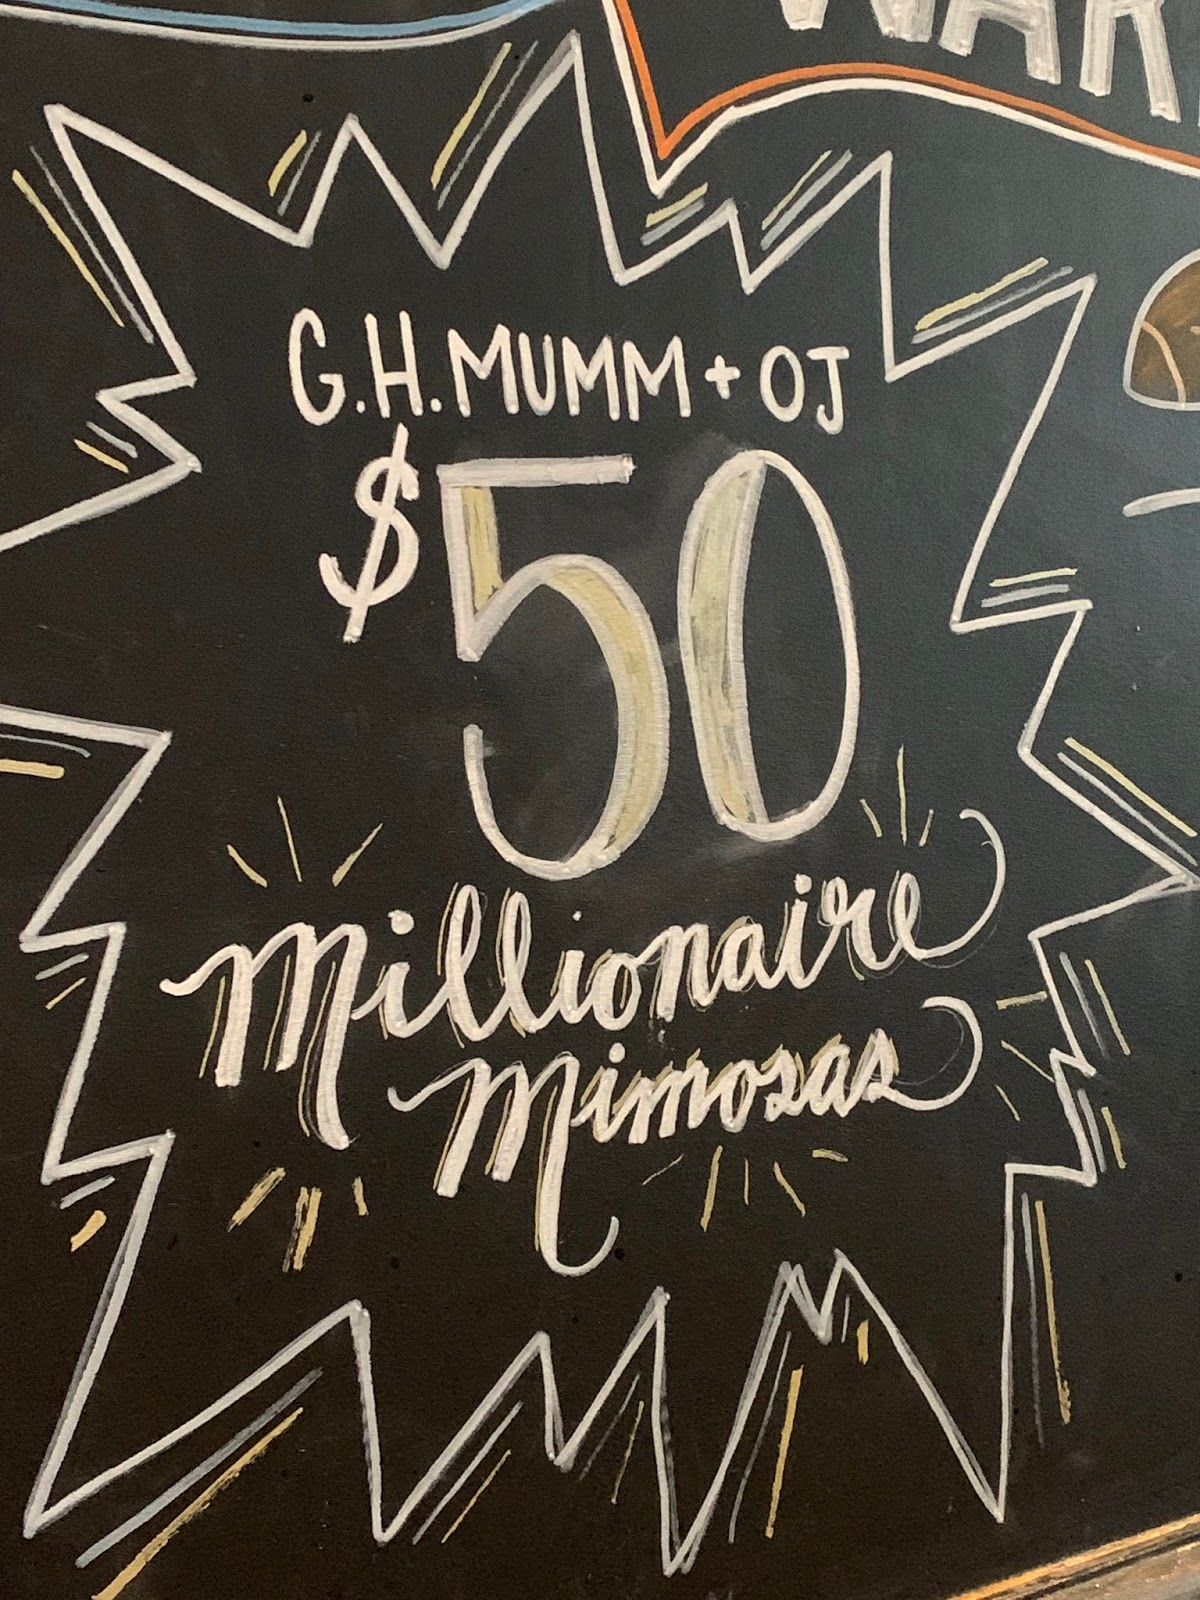 WAR
G.H. MUMM + OJ
$50
Millionaire
Mimosas